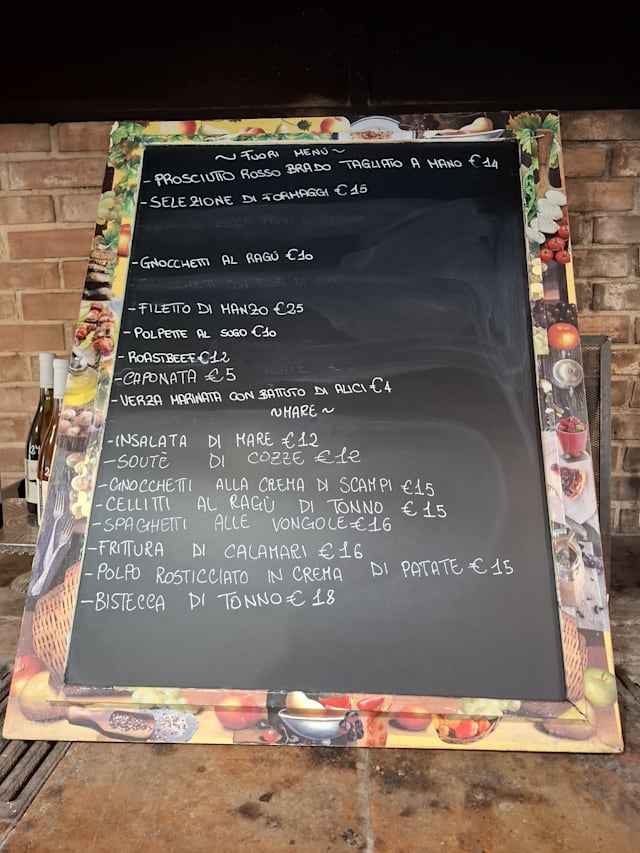 ~ FUORI MENÙ ~
- PROSCIUTTO ROSSO BRADO TAGLIATO A MANO €14
- SELEZIONE DI FORMAGGI €15
- GNOCCHETTI AL RAGÙ €10
- FILETTO DI MANZO €25
- POLPETTE AL SUGO €10
- ROASTBEEF €12
- CAPONATA €5
- VERZA MARINATA CON BATTUTO DI ALICI €4
~ MARE ~
- INSALATA DI MARE €12
- SOUTÈ DI COZZE €12
- GNOCCHETTI ALLA CREMA DI SCAMPI €15
- CELLITTI AL RAGÙ DI TONNO €15
- SPAGHETTI ALLE VONGOLE €16
- FRITTURA DI CALAMARI €16
- POLPO ROSTICCIATO IN CREMA DI PATATE €15
- BISTECCA DI TONNO €18